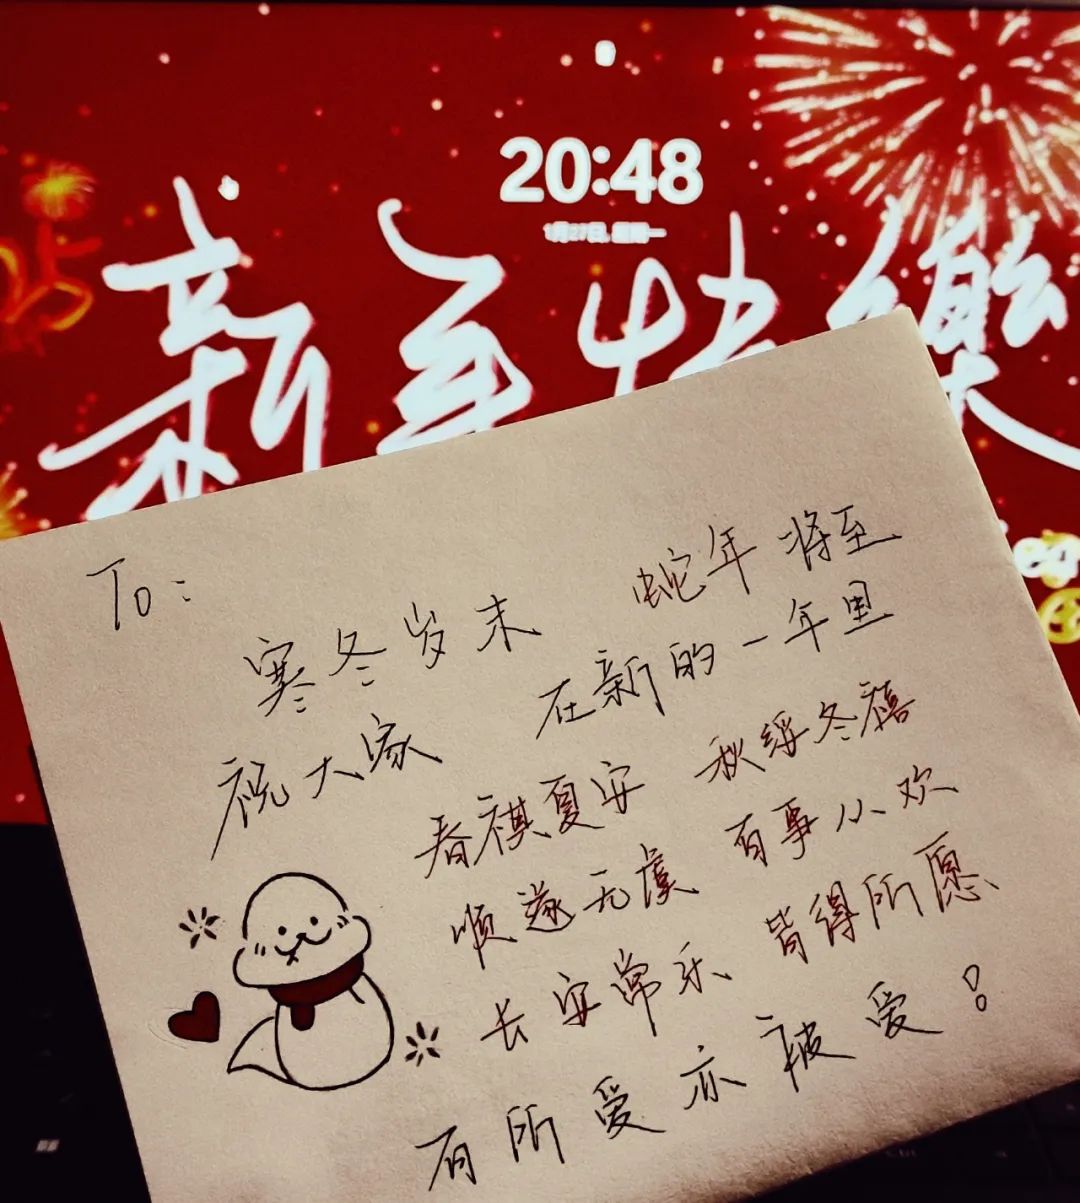 20:48
1月27日, 星期一
新年快樂
To:
寒冬岁末 蛇年将至
祝大家 在新的一年里
春祺夏安 秋绥冬禧
顺遂无虞 百事从欢
长安常乐 皆得所愿
有所爱亦被爱!